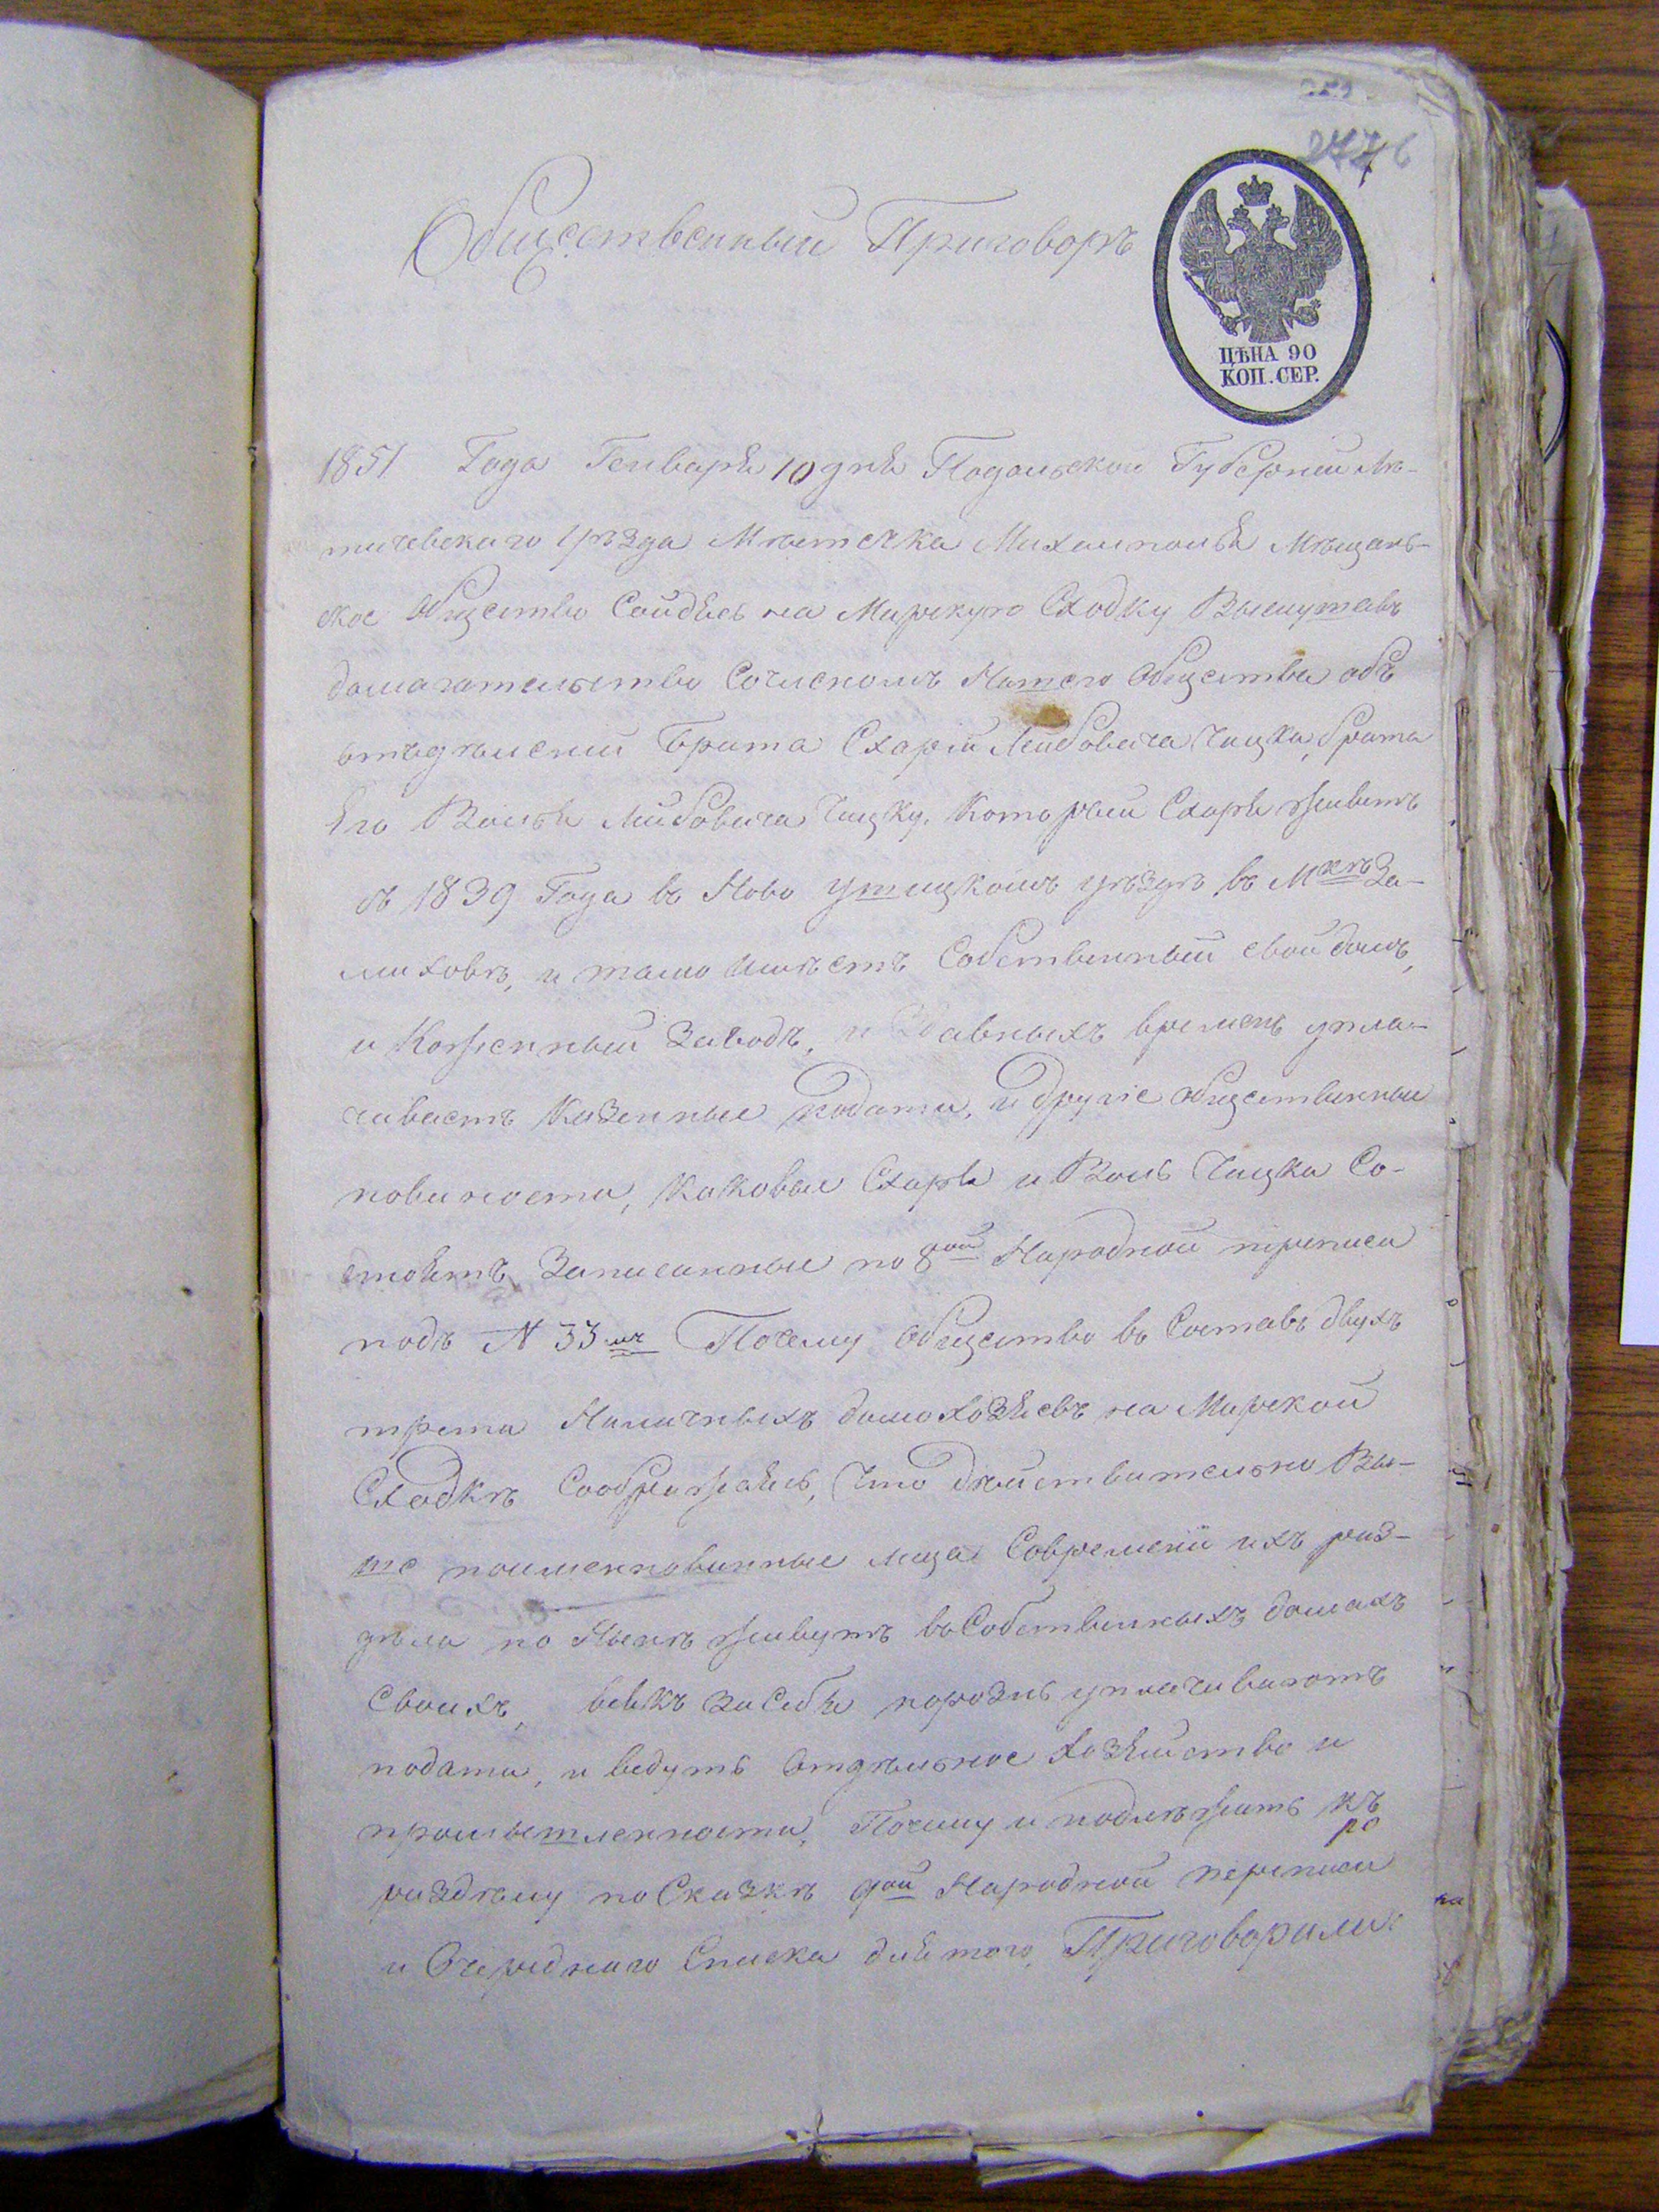 277 6
Общественный Приговоръ
ЦѢНА 90
КОП. СЕР.
1851 Года Генваря 10 дня Подольской Губерніи Ле-
тичевскаго Уѣзда Мѣстечка Михамполья Мѣщанъ-
ское Общество Сойдясь на Мирскую Сходку Выслушавъ
домагательство Сочленомъ Нашего Общества объ
отъдѣленіи Брата Схарія Лейбовича Чицка, брата
Его Волька Лейбовича Чицку. Который Схаря живетъ
съ 1839 Года въ Ново ушицкомъ уѣздѣ въ Мкѣ За-
миховѣ, и тамо имѣетъ Собственный свой домъ,
и Кожѣнный Заводъ, и Здавныхъ временъ упла-
чиваетъ Казенные подати, и другіе общественные
повиности, каковые Схаря и Воль Чицка Со-
стоятъ Записанные по 8ой Народной переписи
подъ N 33мъ Почему Общество въ Составѣ двухъ
трети Наличныхъ домохозяевъ на Мирской
Сходкѣ Сообразжаясь, Что дѣйствительно Вы-
ше поименнованные лица Современи ихъ раз-
дѣла по Нынѣ живутъ въ Собственныхъ домахъ
Своихъ, всякъ за Себя порознь уплачиваютъ
подати, и ведутъ Отдѣльное хозяйство и
промышленности, Почему и подлѣжитъ къ
раздѣлу по Сказкѣ 9ой Народной переписи
и Очереднаго Списка для того, Приговорили: